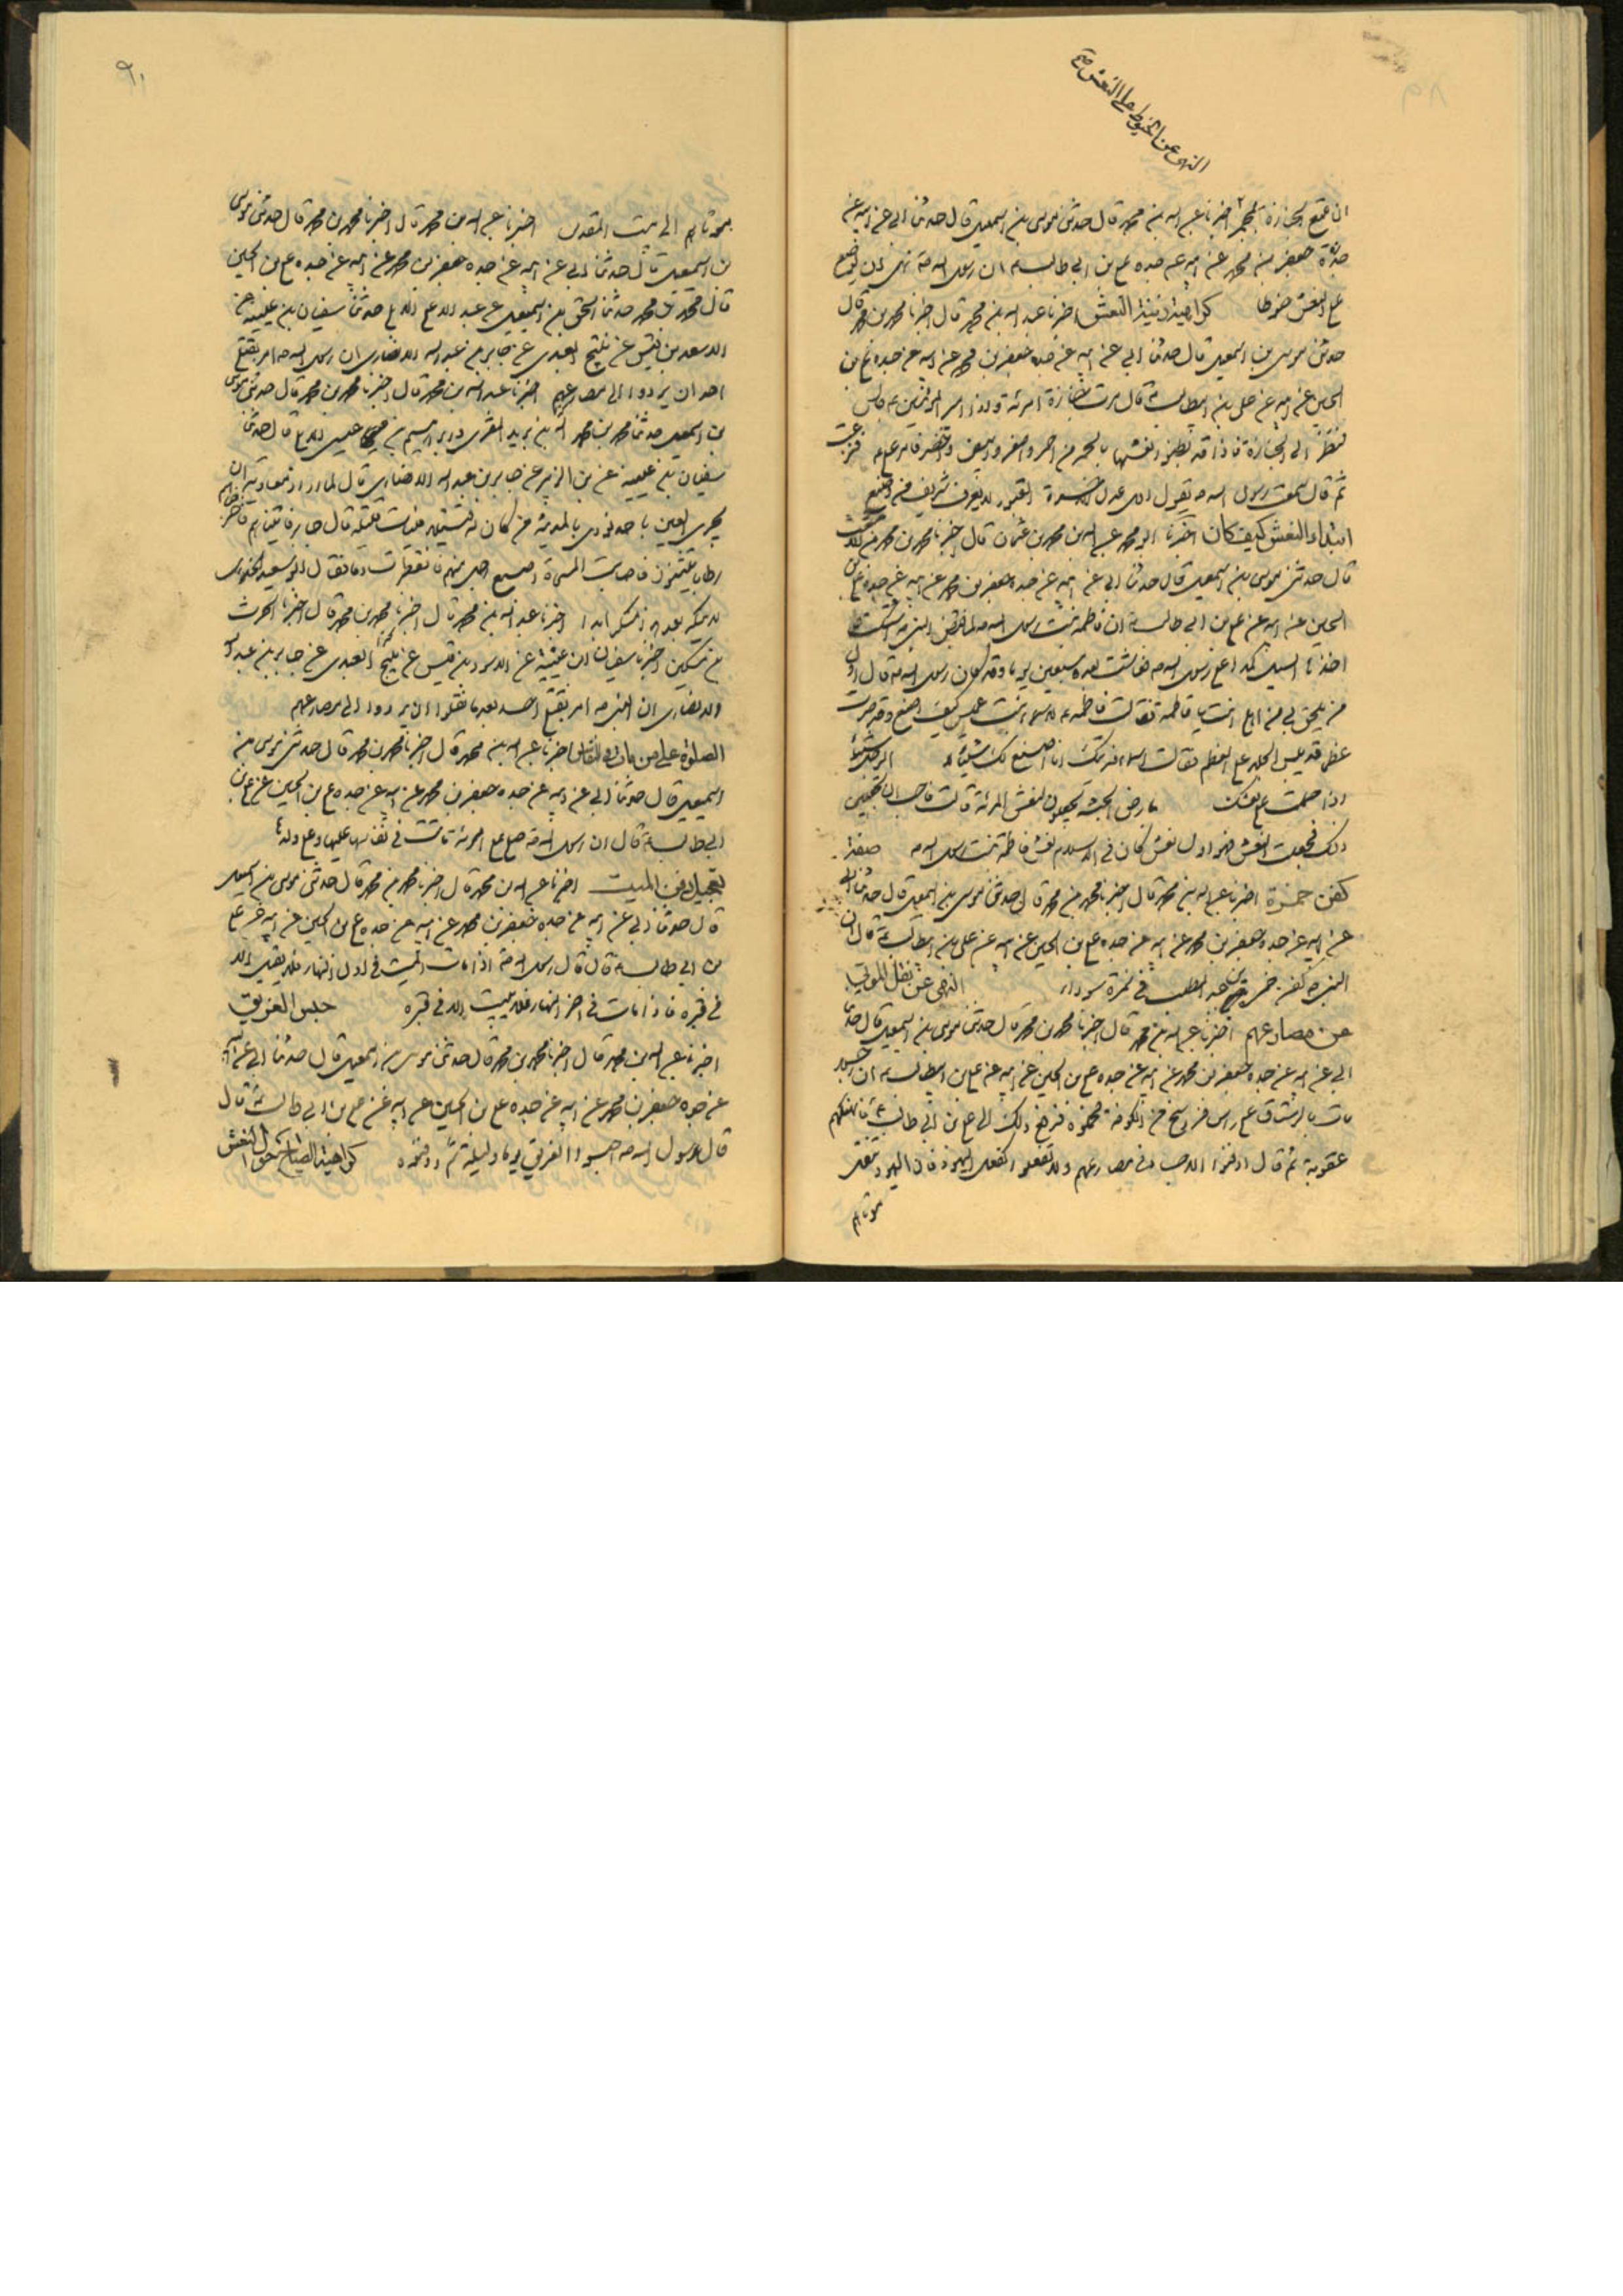 النهى عن الحنوط على النعش
٨٩
ان تتبع الجنازة بمجمر اخبرنا عبد الله بن محمد قال حدثنى موسى بن اسمعيل قال حدثنا ابى عن ابيه عن
جده جعفر بن محمد عن ابيه عن جده على بن ابى طالب ان رسول الله نهى ان يوضع
على النعش حنوطا كراهية النعش اخبرنا عبد الله بن محمد قال اخبرنا محمد بن محمد قال
حدثنى موسى بن اسمعيل قال حدثنا ابى عن ابيه عن جده جعفر بن محمد عن ابيه عن جده على بن
الحسين عن ابيه عن على بن ابيطالب قال مرت جنازة امرئة واذا امير المؤمنين جالس
فنظر الى الجنازة فاذا قد نعشها من احمر واصفر وابيض واخضر فامر
ثم قال سمعت رسول الله يقول اول عدل الاخرة القبور لا يعرف شريف من وضيع
ابتداء النعش كيف كان اخبرنا ابو محمد عبد الله بن محمد بن عثمان قال اخبرنا محمد بن محمد بن الاشعث
قال حدثنى موسى بن اسمعيل قال حدثنا ابى عن ابيه عن جده جعفر بن محمد عن ابيه عن جده على بن
الحسين عن ابيه عن على بن ابى طالب ان فاطمة بنت رسول الله لما قبض النبى
اخذها السل كمدا على رسول الله فعاشت بعده سبعين يوما وقد كان رسول الله قال اول
من يلحق بى من اهلى انت يا فاطمة فقالت فاطمة لاسماء بنت عميس كيف اصنع وقد صرت
عظما قد يبس الجلد على العظم فقالت اسماء فديتك انا اصنع لك شيئا
اذا حملت على نعشك بارض الحبشة يجعلون لنعش المرئة قالت فاحب ان تجعلين
ذلك فجعلت النعش فهو اول نعش كان فى الاسلام نعش فاطمة بنت رسول الله صفة
كفن حمزة اخبرنا عبد الله بن محمد قال اخبرنا محمد بن محمد قال حدثنى موسى بن اسمعيل قال حدثنا ابى
عن ابيه عن جده جعفر بن محمد عن ابيه عن جده على بن الحسين عن ابيه عن على بن ابيطالب قال ان
النبى كفن حمزة بن عبد المطلب فى نمرة سوداء النهى عن نقل الموتى
من مصارعهم اخبرنا عبد الله بن محمد قال اخبرنا محمد بن محمد قال حدثنى موسى بن اسمعيل قال حدثنا
ابى عن ابيه عن جده جعفر بن محمد عن ابيه عن جده على بن الحسين عن ابيه عن على بن ابيطالب ان
مات بالرستاق على راس فرسخ من الكوفة فحملوه فرفع ذلك الى على بن ابى طالب فانهكهم
عقوبة ثم قال ادفنوا الاجساد فى مصارعهم ولا تفعلوا كفعل اليهود فان اليهود تنقل
موتاهم
٩٠
موتاهم الى بيت المقدس اخبرنا عبد الله بن محمد قال اخبرنا محمد بن محمد قال حدثنى موسى
بن اسمعيل قال حدثنا ابى عن ابيه عن جده جعفر بن محمد عن ابيه عن جده على بن الحسين
قال محمد بن محمد حدثنا اسحق بن اسمعيل عن عبد الاعلى حدثنا سفيان بن عيينة عن
الاسود بن قيس عن نبيح العبدى عن جابر بن عبد الله الانصارى ان رسول الله امر بقتلى
احد ان يردوا الى مصارعهم اخبرنا عبد الله بن محمد قال اخبرنا محمد بن محمد قال حدثنى موسى
بن اسمعيل حدثنا محمد بن عبد الله بن يزيد المقرى قال حدثنا
سفيان بن عيينة عن ابى الزبير عن جابر بن عبد الله الانصارى قال لما اراد معاوية ان
يجرى العين باحد نودى بالمدينة من كان له قتيل فليات قتيله قال جابر فاتيناهم فاخرجناهم
رطابا يتثنون فاصابت المسحاة اصبع رجل منهم فانفطرت دما فقال ابو سعيد الخدرى
لا ينكر بعد هذا منكر ابدا اخبرنا عبد الله بن محمد قال اخبرنا محمد بن محمد قال اخبرنا الحرث
بن مسكين اخبرنا سفيان ابن عيينة عن الاسود بن قيس عن نبيح العبدى عن جابر بن عبد الله
الانصارى ان النبى امر بقتلى احد بعد ما نقلوا ان يردوا الى مصارعهم
الصلوة على من مات فى النفاس اخبرنا عبد الله بن محمد قال اخبرنا محمد بن محمد قال حدثنى موسى بن
اسمعيل قال حدثنا ابى عن ابيه عن جده جعفر بن محمد عن ابيه عن جده على بن الحسين عن على بن
ابى طالب قال ان رسول الله صلى على امرئة ماتت فى نفاسها عليها وعلى ولدها
تعجيل دفن الميت اخبرنا عبد الله بن محمد قال اخبرنا محمد بن محمد قال حدثنى موسى بن اسمعيل
قال حدثنا ابى عن ابيه عن جده جعفر بن محمد عن ابيه عن جده على بن الحسين عن ابيه عن على
بن ابى طالب قال قال رسول الله اذا مات الميت فى اول النهار فلا يقيل الا
فى قبره فاذا مات فى اخر النهار فلا يبيت الا فى قبره حبس الغريق
اخبرنا عبد الله بن محمد قال اخبرنا محمد بن محمد قال حدثنى موسى بن اسمعيل قال حدثنا ابى عن ابيه
عن جده جعفر بن محمد عن ابيه عن جده على بن الحسين عن ابيه عن على بن ابى طالب قال
قال رسول الله احبسوا الغريق يوما وليلة ثم ادفنوه كراهية الصياح خلف النعش